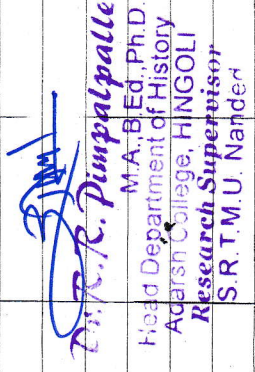 Dr. R. R. Pimpalpalle
M.A., B.Ed., Ph.D.
Head Department of History
Adarsh College, HINGOLI
Research Supervisor
S.R.T.M.U. Nanded